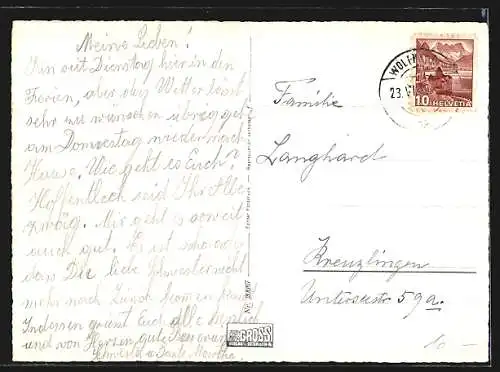 Meine Lieben!
Bin seit Dienstag hier in den
Ferien, aber das Wetter lässt
sehr zu wünschen übrig geh
am Donnerstag wieder nach
Hause. Wie geht es Euch?
Hoffentlich seid Ihr Alle
zwäg. Mir geht es soweit
auch gut. Es ist schade
dass Die liebe Schwester nicht
mehr nach Zürich kommen kann.
Indessen grüsst Euch alle herzlich
und von Herzen gute Besserung
Tante Martha.
WOLF
23.VI
10 HELVETIA
Familie
Langhard
Kreuzlingen
Unterseestr 59a.
GROSS
10 -